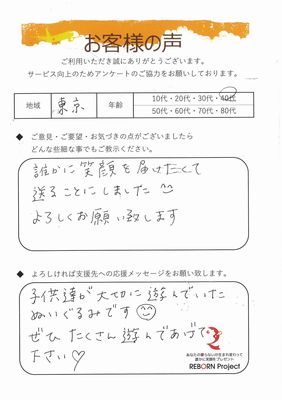 お客様の声
ご利用いただき誠にありがとうございます。
サービス向上のためアンケートのご協力をお願いしております。
地域 東京 年齢 10代・20代・30代・40代
50代・60代・70代・80代
◆ ご意見・ご要望・お気づきの点がございましたら
どんな些細な事でもご教示ください。
誰かに笑顔を届けたくて
送ることにしました
よろしくお願い致します
◆ よろしければ支援先への応援メッセージをお願い致します。
子供達が大切に遊んでいた
ぬいぐるみです
ぜひたくさん遊んであげて
下さい♡
あなたの要らないが生まれ変わって
誰かに笑顔をプレゼント
REBORN Project